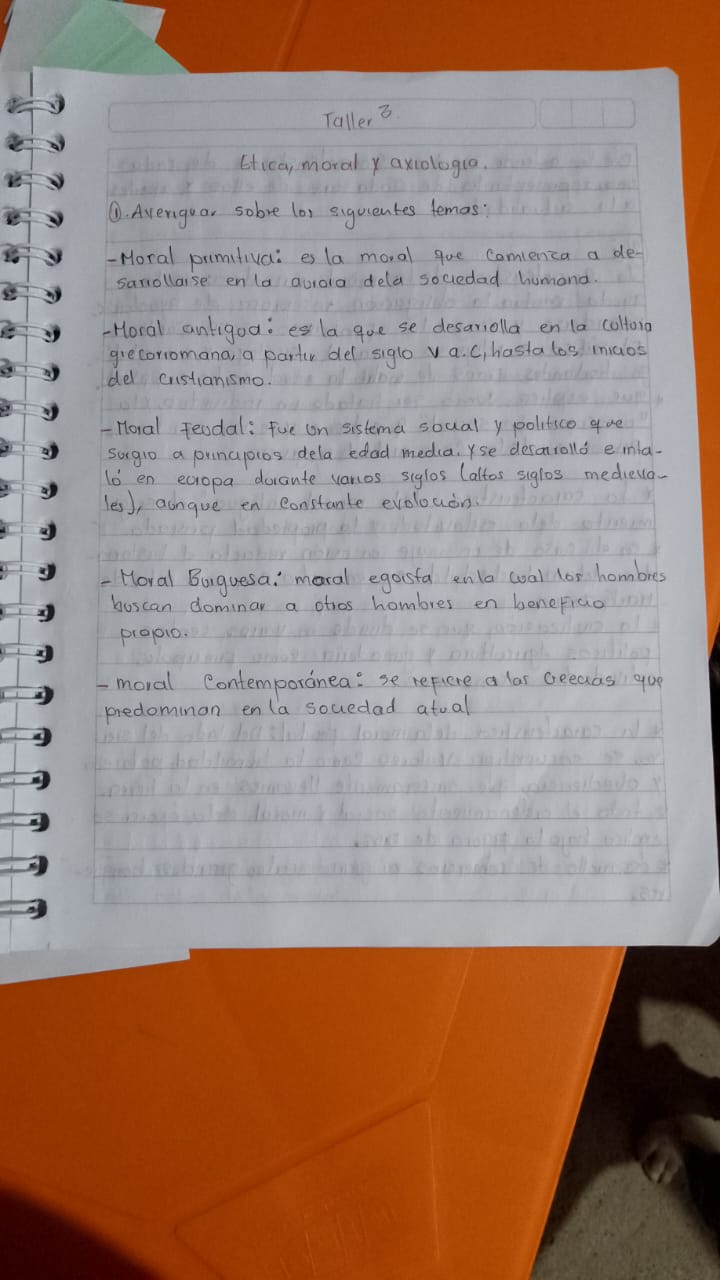 Taller 3
Etica, moral y axiologia.
①. Averiguar sobre los siguientes temas:
-Moral primitiva: es la moral que comienza a de-
sarrollarse en la aurora dela sociedad humana.
-Moral antigua: es la que se desarrolla en la cultura
grecorromana, a partir del siglo V a.C, hasta los inicios
del cristianismo.
- Moral Feudal: Fue un sistema social y politico que
surgio a principios dela edad media. Y se desarolló e mta-
ló en europa durante varios siglos (altos siglos medieva-
les), aunque en constante evolución.
- Moral Burguesa: moral egoísta en la cual los hombres
buscan dominar a otros hombres en beneficio
propio.
- moral Contemporánea: se refiere a las creecias que
predominan en la sociedad atual